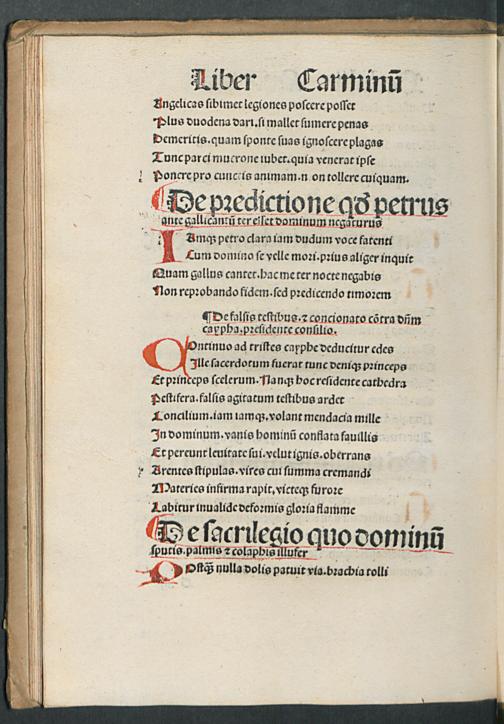 Liber Carminū
Angelicas sibimet legiones poscere posset
Plus duodena dari. si mallet sumere penas
Demeritis. quam sponte suas ignoscere plagas
Tunc parci mucrone iubet. quia venerat ipse
Ponere pro cunctis animam. non tollere cuiquam.
De predictione qđ petrus
ante gallicantū ter esset dominum negaturus
IAmqꝫ petro clara iam dudum voce fatenti
Cum domino se velle mori. prius aliger inquit
Quam gallus cantet. hac me ter nocte negabis
Non reprobando fidem. sed predicendo timorem
¶De falsis testibus. ⁊ concionato cōtra dn̄m
cayphā. presidente consilio.
COntinuo ad tristes cayphe deducitur edes
Ille sacerdotum fuerat tunc deniqꝫ princeps
Et princeps scelerum. Nanqꝫ hoc residente cathedra
Pestifera. falsis agitatum testibus ardet
Concilium. iam iamqꝫ. volant mendacia mille
In dominum. vanis hominū conflata fauillis
Et pereunt leuitate sui. velut ignis. oberrans
Arentes stipulas. vires cui summa cremandi
Materies infirma rapit, victeqꝫ furore
Labitur inualide deformis gloria flamme
De sacrilegio quo dominū
sputis. palmis ⁊ colaphis illuser
POstqꝫ̄ nulla dolis patuit via. brachia tolli